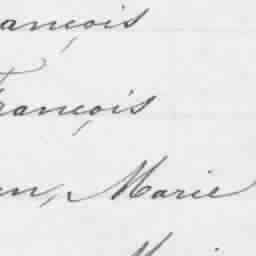 ançois
François
en, Marie